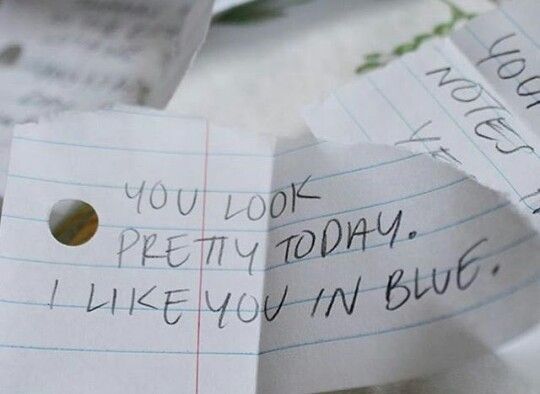 YOU LOOK
PRETTY TODAY.
I LIKE YOU IN BLUE.
YOUR
NOTES